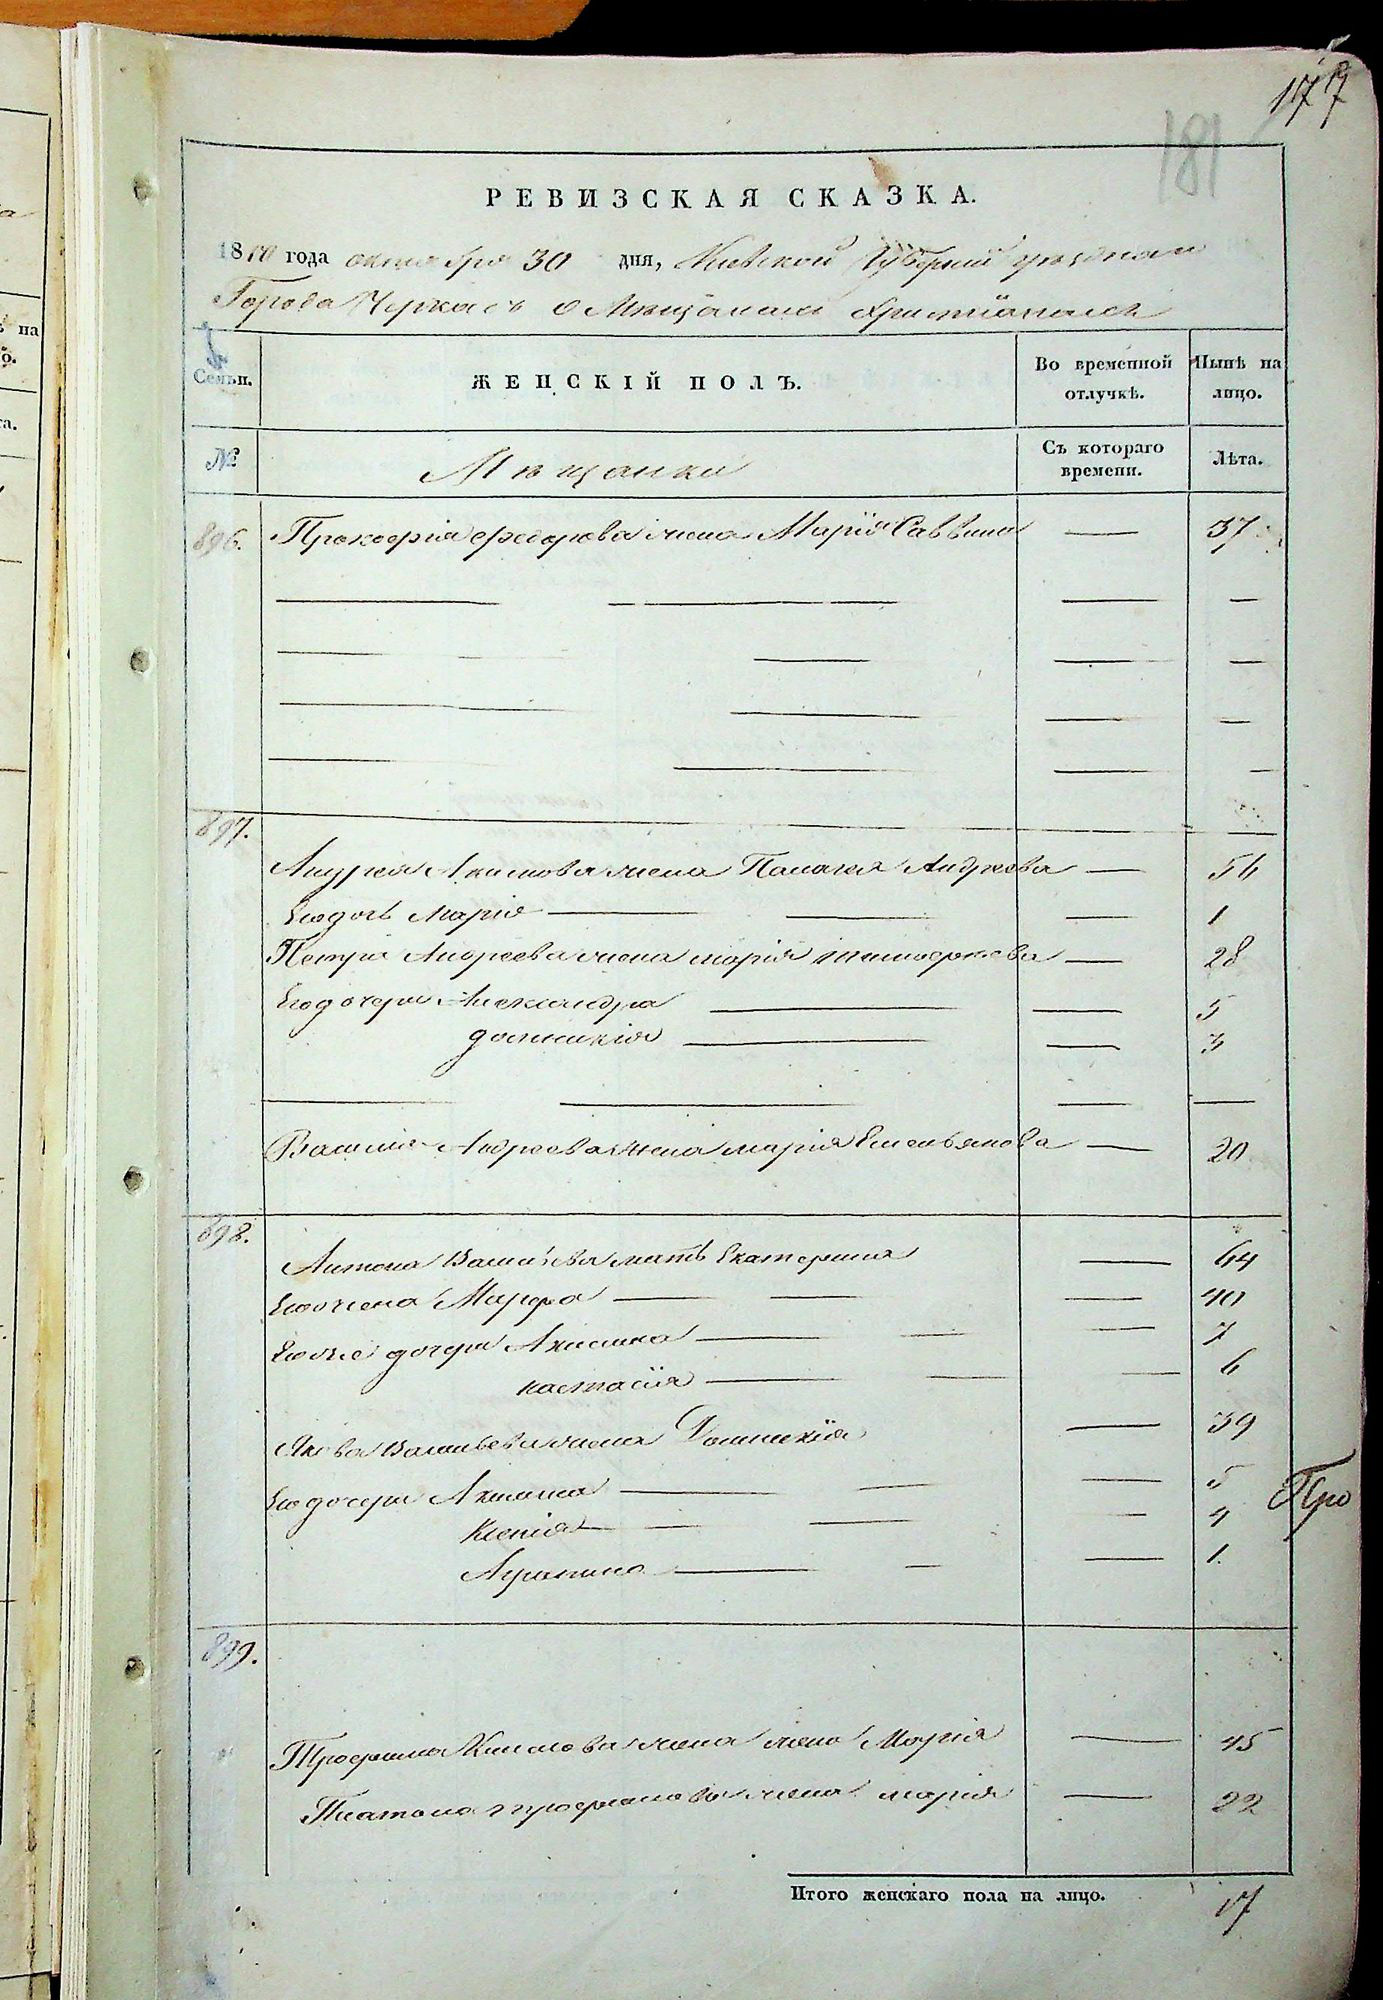 177
181
РЕВИЗСКАЯ СКАЗКА.
1850 года октября 30 дня, Киевской Губернии уезднаго
Города Черкасъ о Мещанахъ Христіанахъ
Семьи. ЖЕНСКІЙ ПОЛЪ. Во временной отлучкѣ. Нынѣ на лицо.
№ Мещанки Съ котораго времени. Лѣта.
896. Прокофія Федорова жена Марія Саввина — 37
897.
Андрея Акимова жена Палагея Андреева — 56
Его дочь Марія — 1
Петра Андреева жена Марія Тимофеева — 28
Его дочери Александра — 5
Домникія — 3
Василия Андреева жена Марія Емельянова — 20
898.
Антона Васильева мать Екатерина — 64
Его жена Марфа — 40
Его же дочери Акилина — 7
Настасия — 6
Якова Васильева жена Домникія — 39
Его дочери — 5
Ксенія — 4
— 1.
Про
899.
Трофима Климова жена Марія — 45
Платона Трофимова жена Марія — 22
Итого женскаго пола на лицо. 17
на
о.
та.